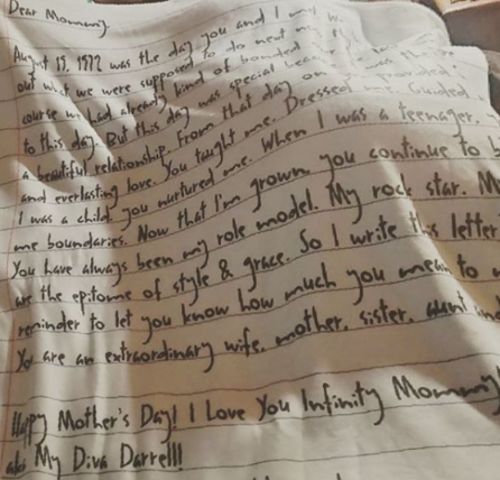 Dear Mommy,
August 15, 1972 was the day you and I met. W
out what we were supposed to do next
course we had already kind of bonded
to this day. But this day was special because
a beautiful relationship. From that day on
and everlasting love. You taught me. Dressed me. Guided
I was a child you nurtured me. When I was a teenager, y
me boundaries. Now that I'm grown, you continue to b
You have always been my role model. My rock star. M
are the epitome of style & grace. So I write this letter
reminder to let you know how much you mean to
You are an extraordinary wife, mother, sister, aunt and
Happy Mother's Day! I Love You Infinity Mommy!
aka My Diva Darrell!